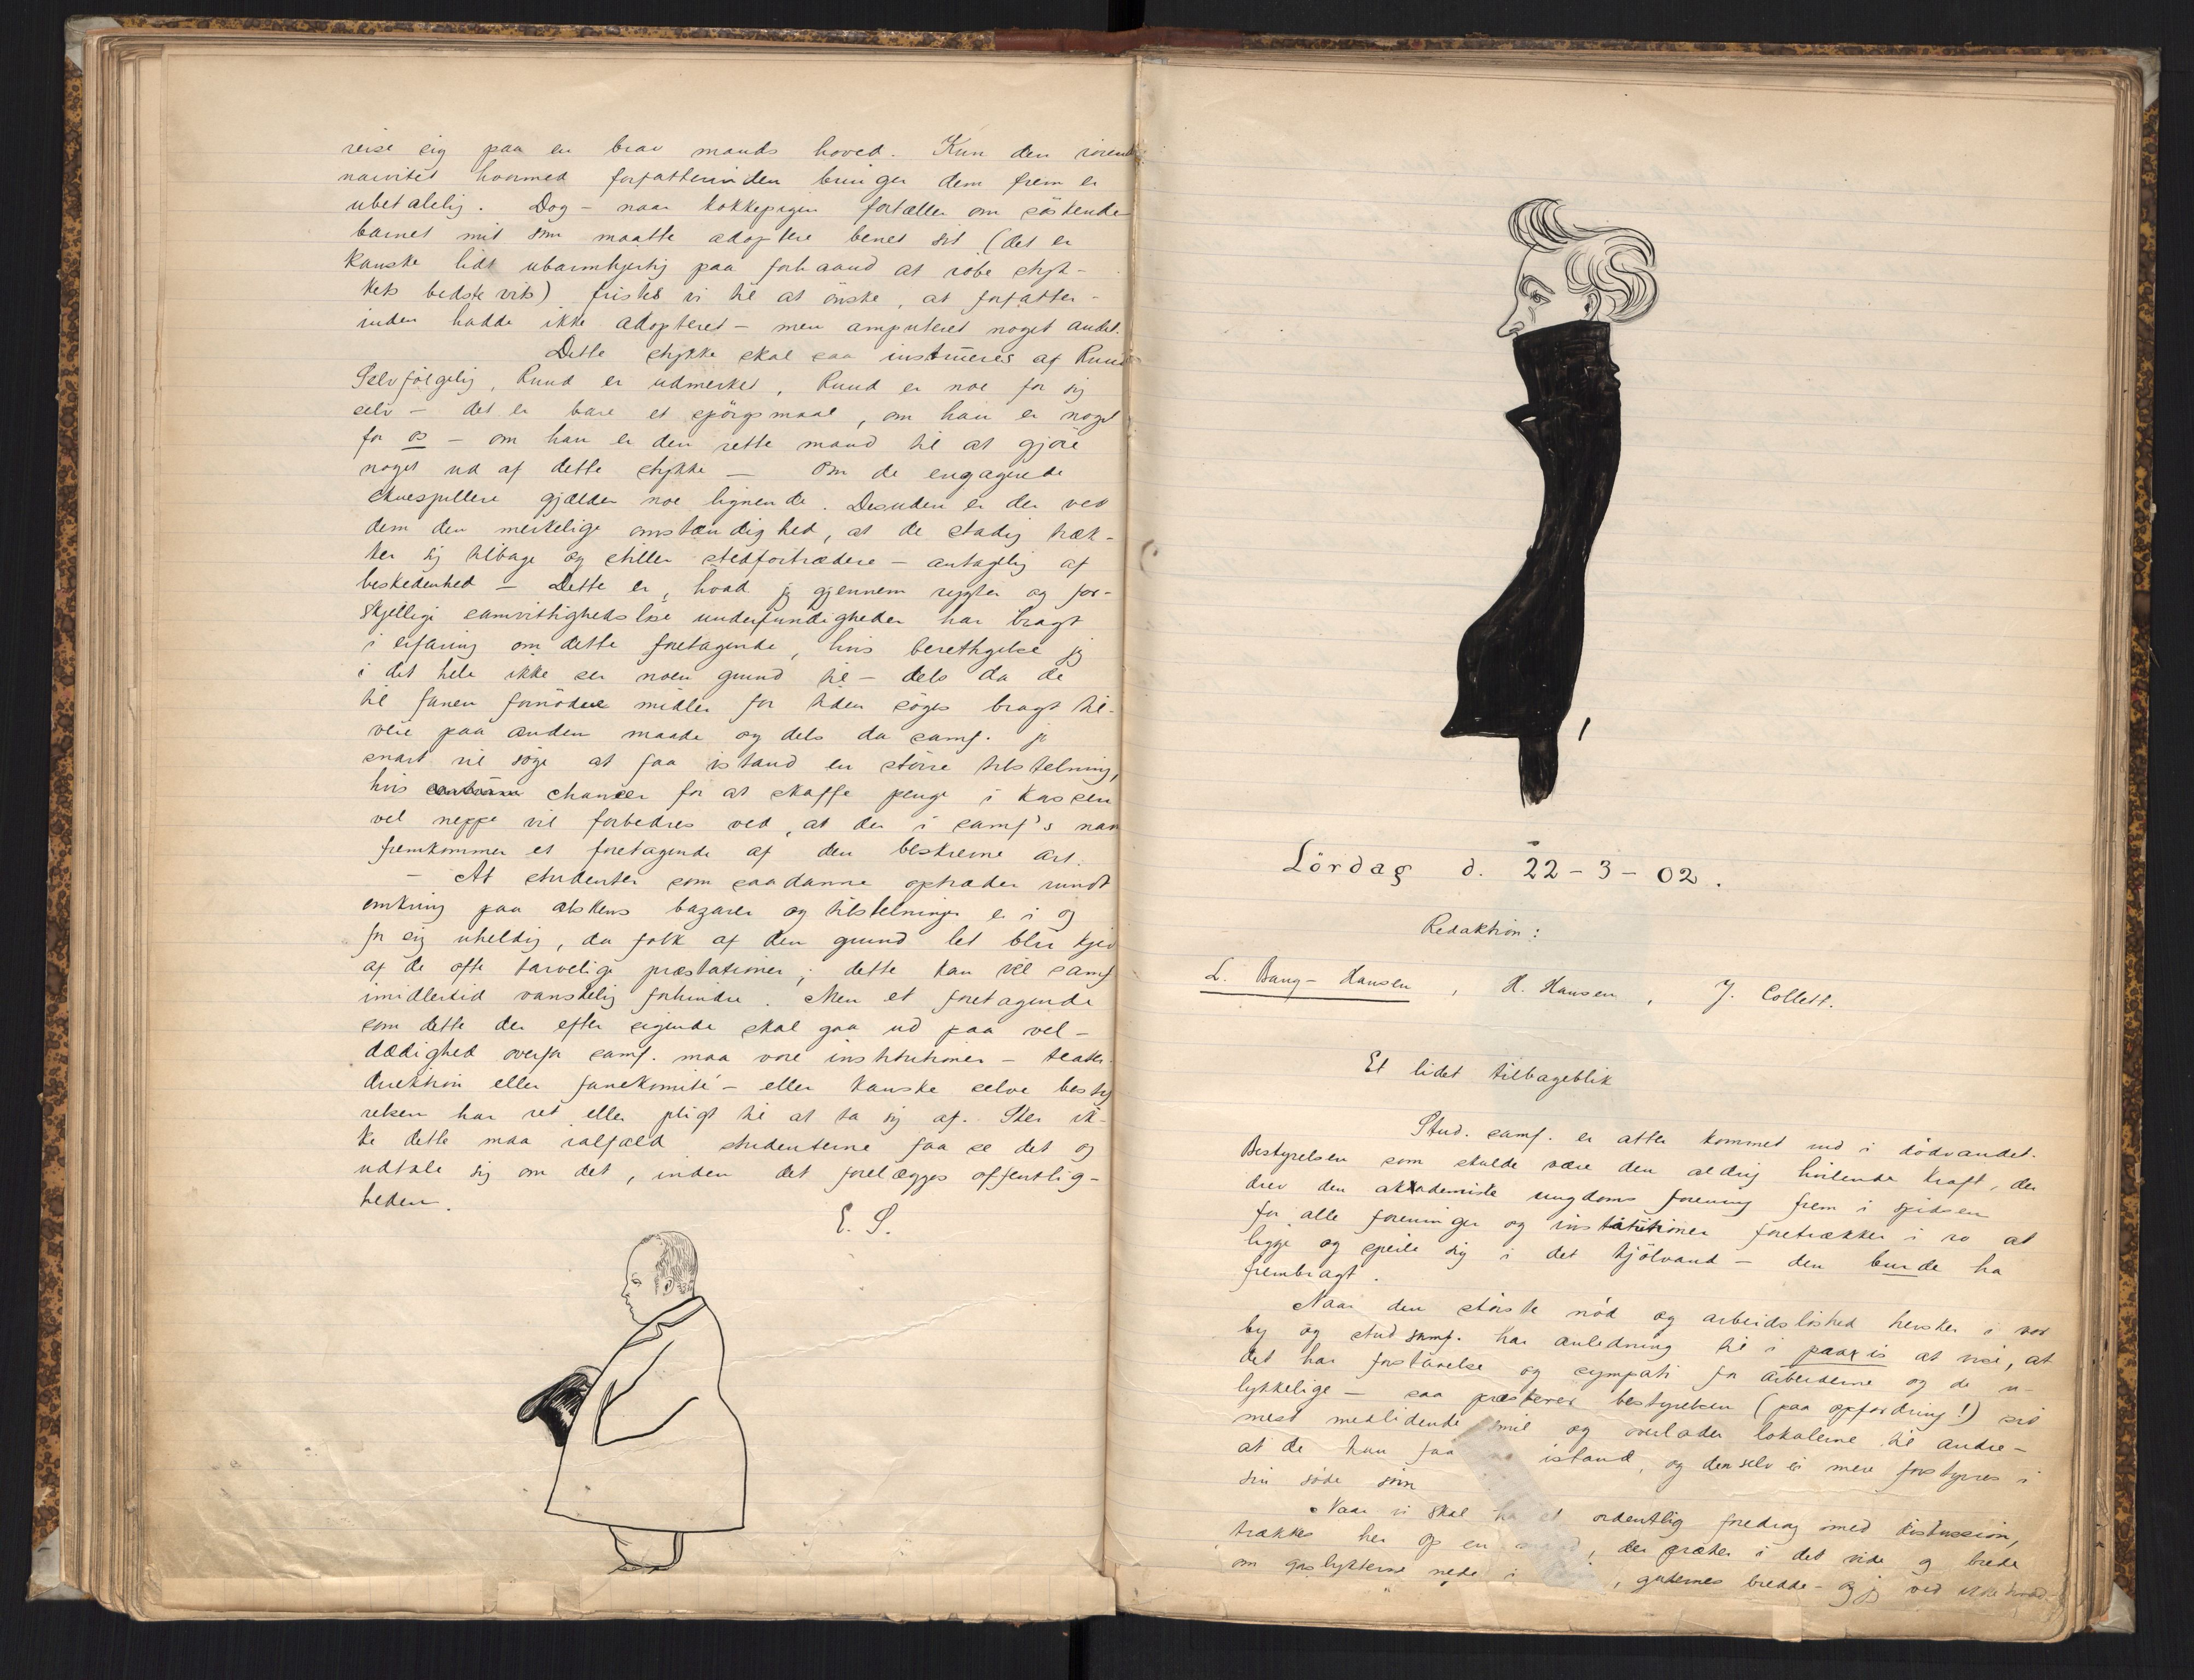 reise sig paa en brav mands hoved. Kun den rörende
naivitet hvormed forfatterinden bringer dem frem er
ubetalelig. Dog – naar kokkepigen fortæller om söskende
barnet mit som maatte adoptere benet sit (det er
kanske lidt ubarmhjertig paa forhaand at röbe styk-
kets bedste vits) fristes vi til at önske, at forfatter-
inden hadde ikke adopteret – men amputeret noget andet.
Dette stykke skal saa instrueres af Ruud
Selvfölgelig, Ruud er udmerket, Ruud er noe for sig
selv – det er bare et spörgsmaal, om han er noget
for os – om han er den rette mand til at gjöre
noget ud af dette stykke – Om de engagerede
skuespillere gjælder noe lignende. Desuden er der ved
dem den merkelige omstændighed, at de stadig træk-
ker sig tilbage og stiller stedfortrædere – antagelig af
beskedenhed – Dette er, hvad jeg gjennem rygter og for-
skjellige samvittighedslöse underfundigheder har bragt
i erfaring om dette foretagende, hvis berettigelse jeg
i det hele ikke ser noen grund til – dels da de
til fanen fornödne midler for tiden söges bragt til-
veie paa anden maade og dels da samf. jo
snart vil söge at faa istand en större tilstelning,
hvis chancer for at skaffe penge i kassen
vel neppe vil forbedres ved, at der i samf's navn
fremkommer et foretagende af den beskrevne art.
– At studenter som saadanne optræder rundt
omkring paa alskens bazarer og tilstelninger er i og
for sig uheldig, da folk af den grund let blir kjed
af de ofte tarvelige præstationer; dette kan vel samf
imidlertid vanskelig forhindre. Men et foretagende
som dette der efter sigende skal gaa ud paa vel-
dædighed overfor samf. maa vore institutioner – teater-
direktion eller fanekomité – eller kanske selve besty
relsen har ret eller pligt til at ta sig af. Sker ik-
ke dette maa ialfald studenterne faa se det og
udtale sig om det, inden det forelægges offentlig-
heden.
E. S.
Lördag d. 22 – 3 – 02.
Redaktion:
L. Bang-Hansen, H. Hansen, J. Collett.
Et lidet tilbageblik
Stud. samf. er atter kommet ind i dödvandet.
Bestyrelsen som skulde være den aldrig hvilende kraft, der
drev den akademiske ungdoms forening frem i spidsen
for alle foreninger og institutioner foretrækker i ro at
ligge og speile sig i det kjölvand – den burde ha
frembragt.
Naar den störste nöd og arbeidslöshed hersker i vor
by og stud samf. har anledning til i paaxis at vise, at
det har forstaaelse og sympati for arbeiderne og de u-
lykkelige – saa præsterer bestyrelsen (paa opfordring!) sit
mest medlidende smil og overlader lokalerne til andre –
at de kan faa istand, og den selv ei mere forstyrres i
sin söde sövn
Naar vi skal ha et ordentlig foredrag med diskussion,
trækkes her op en mand, der præker i det vide og brede
om gaslygterne nede i , gaternes bredde – og jeg ved ikke hvad